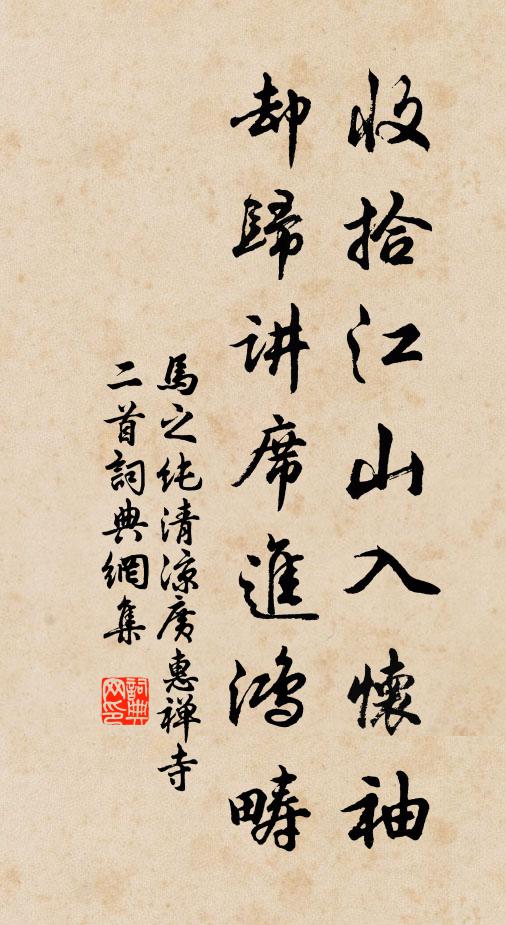 收拾江山入懷袖
却歸講席進鴻疇
馬之純清涼廣惠禅寺
二首詞典網集
詞典
网印